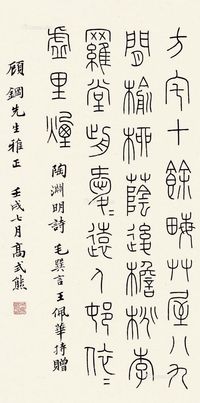 方宅十餘畮艸屋八九
間榆柳蔭後檐桃李
羅堂前愛〻遠人邨依〻
虛里煙 陶淵明詩 毛巽言王佩華持贈
顧鋼先生雅正 壬戌七月高式熊